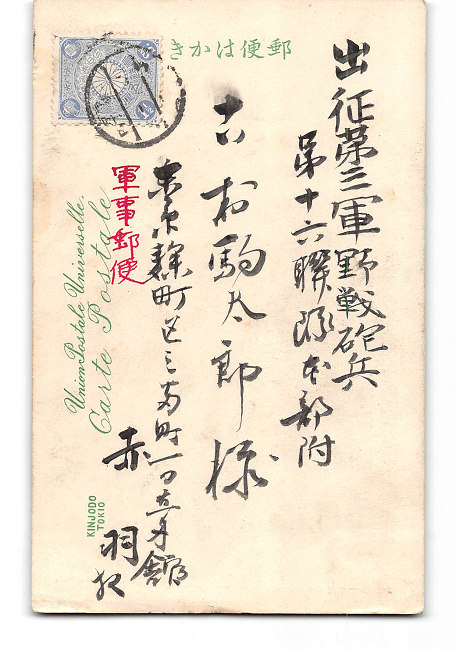 郵便はかき
出征第三軍野戦砲兵
第十六聯隊本部附
駒太郎様
軍事郵便
東京麹町区三番町一
赤羽
Union Postale Universelle.
Carte Postale
KINJODO
TOKIO